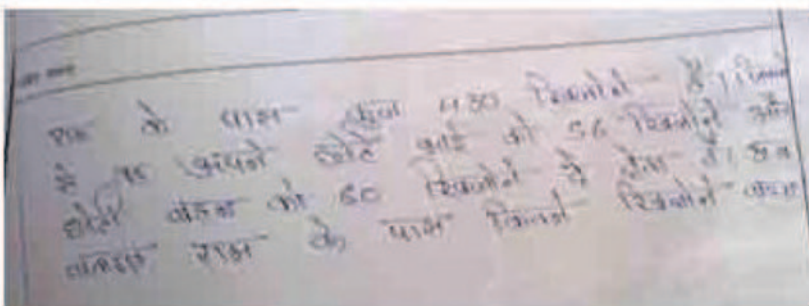 राम के पास कुल 430 खिलौने है। जिनमें
से वह अपने छोटे भाई को 56 खिलौने और
छोटी बहन को 60 खिलौने दे देता है। अब
बताइए राम के पास कितने खिलौने बचे